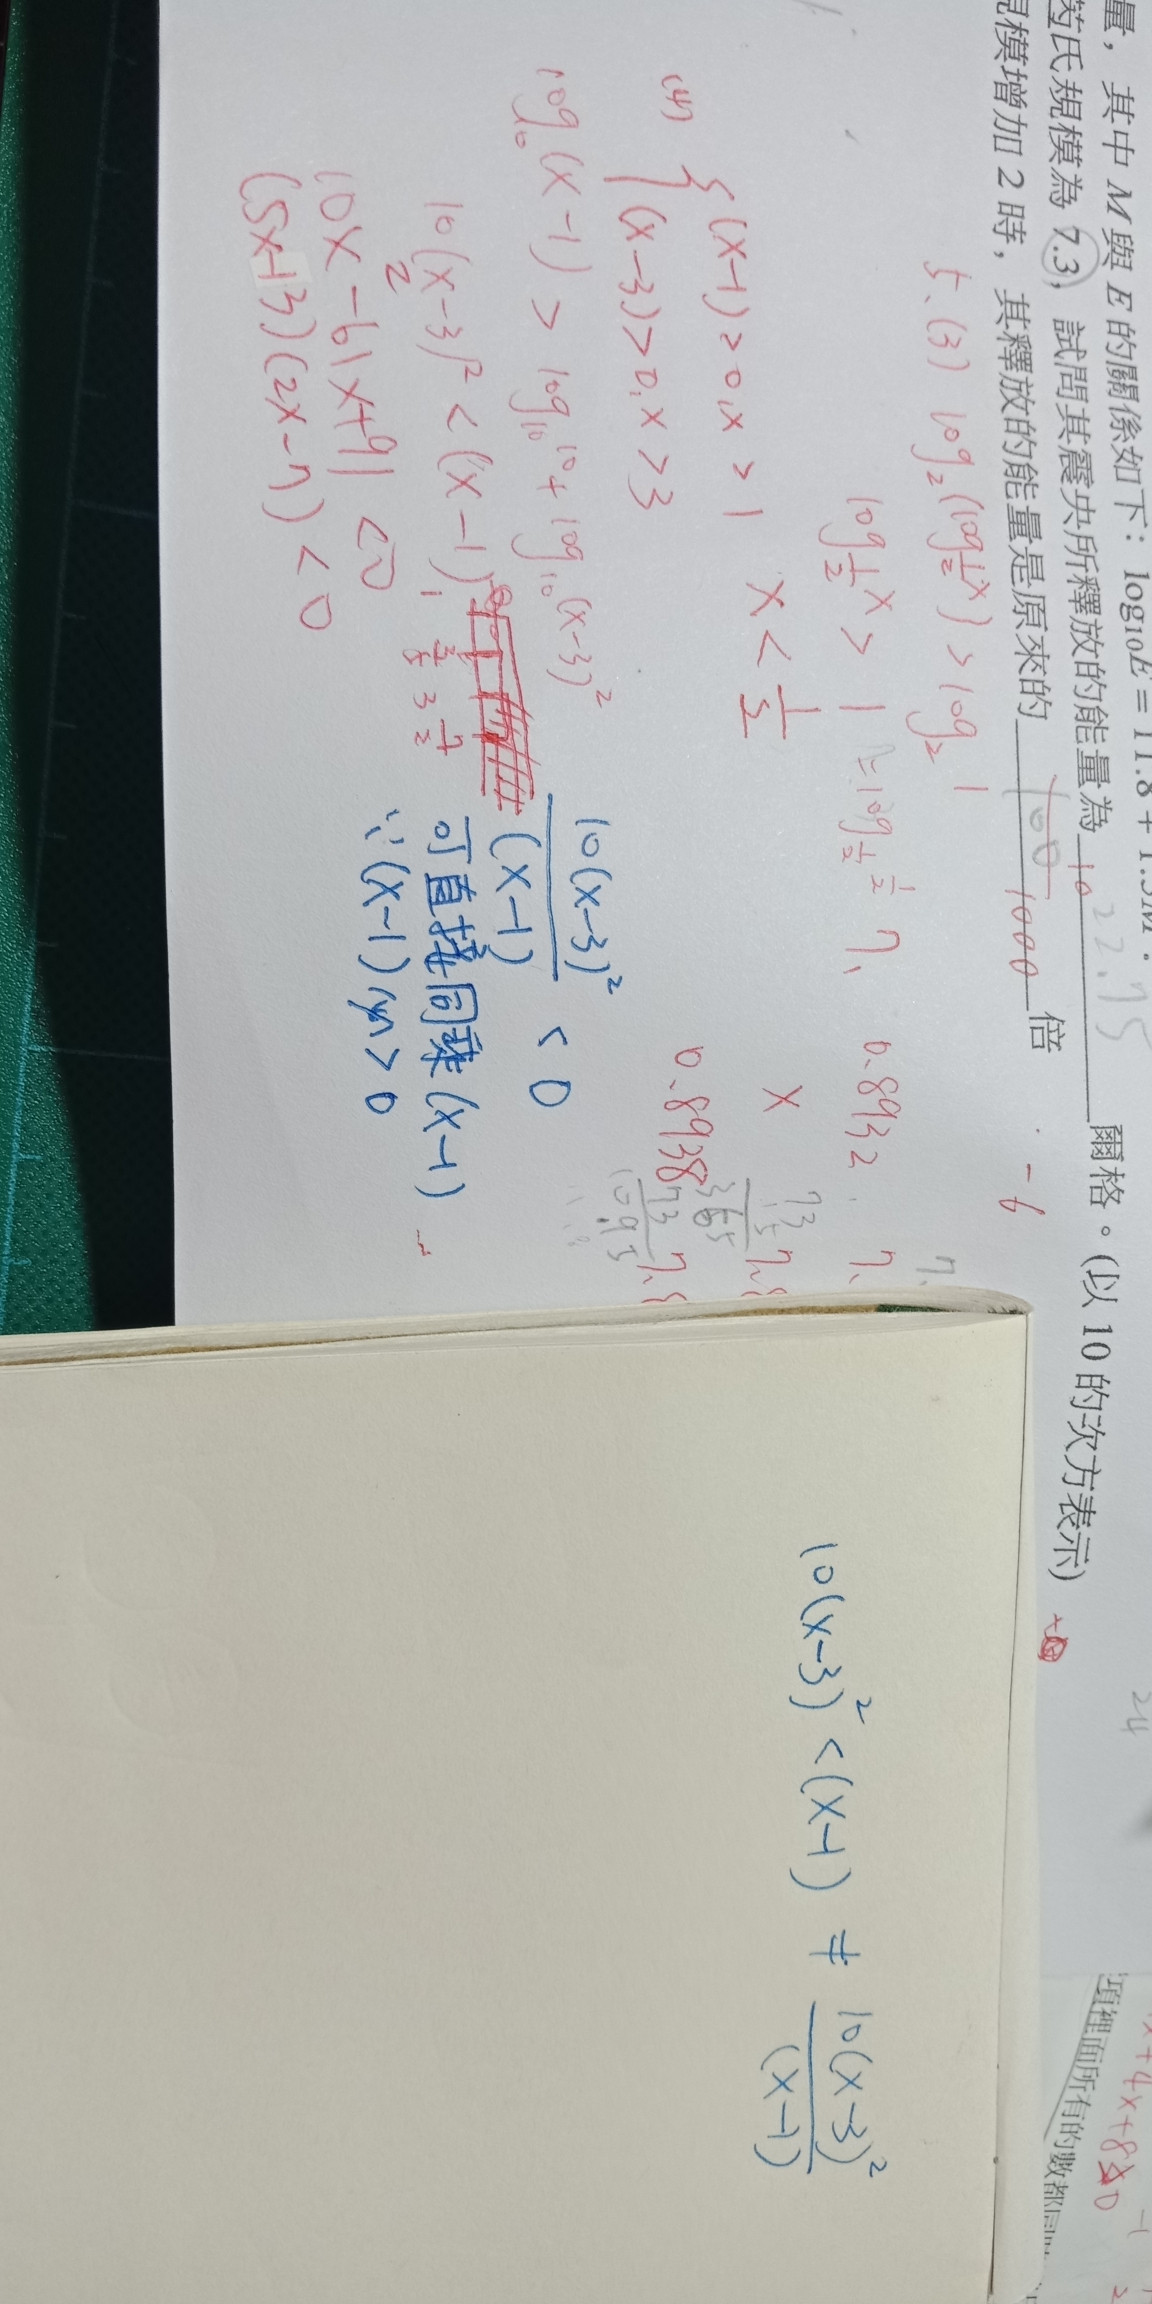 量，其中 M 與 E 的關係如下： log₁₀E = 11.8 + 1.5M。
芮氏規模為 7.3，試問其震央所釋放的能量為 10 22.75 爾格。(以 10 的次方表示)
規模增加 2 時，其釋放的能量是原來的 100 1000 倍
-6
24
5、(3) log₂(log_{1/2}x) > log₂ 1
log_{1/2}x > 1 = log_{1/2} 1/2
x < 1/2
0.8932
x
0.8938
73
365
73
10.95
(4) { (x-1) > 0, x > 1
(x-3) > 0, x > 3
log₁₀(x-1) > log₁₀10 + log₁₀(x-3)²
10(x-3)² < (x-1)
10x² - 61x + 91 < 0
(5x-13)(2x-7) < 0
13/5 3 7/2
10(x-3)²/(x-1) < 0
可直接同乘 (x-1)
∵ (x-1) 必 > 0
10(x-3)² < (x-1) ≠ 10(x-3)²/(x-1)
x+4x+8
項裡面所有的數都同